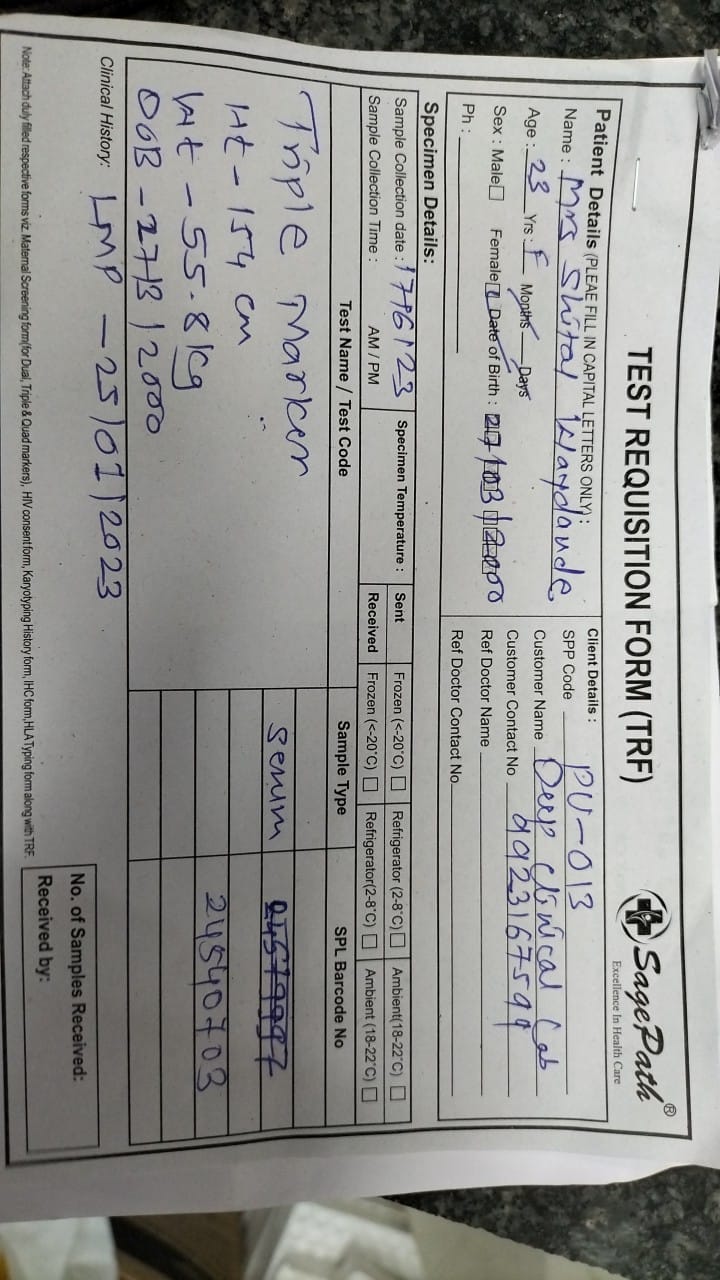 TEST REQUISITION FORM (TRF)
SagePath®
Excellence In Health Care
Patient Details (PLEAE FILL IN CAPITAL LETTERS ONLY):
Name : Mrs Shital
Age : 23 Yrs : F Months Days
Sex : Male Female Date of Birth : 27/03/2000
Ph :
Client Details :
SPP Code PU-013
Customer Name Deep Clinical Lab
Customer Contact No 9923167599
Ref Doctor Name
Ref Doctor Contact No.
Specimen Details:
Sample Collection date : 17/6/23
Sample Collection Time : AM / PM
Specimen Temperature :
Sent Frozen (<-20°C) Refrigerator (2-8°C) Ambient(18-22°C)
Received Frozen (<-20°C) Refrigerator(2-8°C) Ambient (18-22°C)
Test Name / Test Code Sample Type SPL Barcode No
Triple Marker
Ht - 154 cm
Wt - 55.8 kg
DOB - 27/3/2000
serum
24540703
Clinical History: LMP - 25/01/2023
No. of Samples Received:
Received by:
Note: Attach duly filled respective forms viz. Maternal Screening form(for Dual, Triple & Quad markers), HIV consent form, Karyotyping History form, IHC form,HLA Typing form along with TRF.